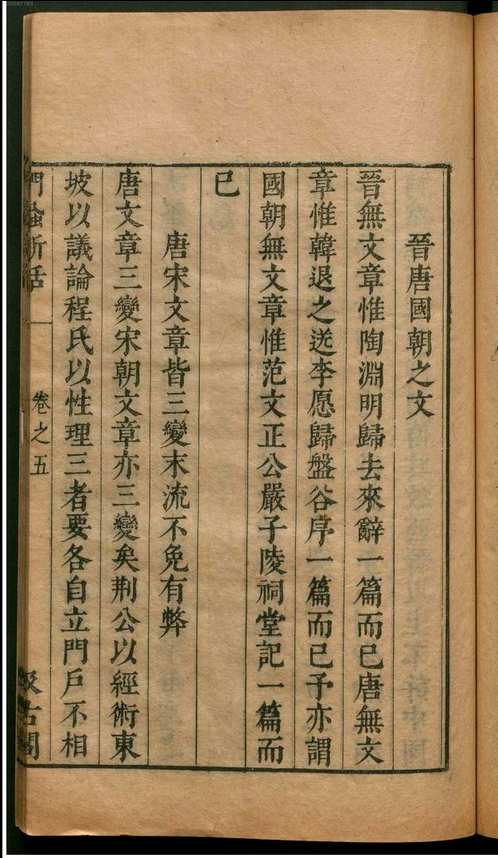 晉唐國朝之文
晉無文章惟陶淵明歸去來辭一篇而已唐無文
章惟韓退之送李愿歸盤谷序一篇而已予亦謂
國朝無文章惟范文正公嚴子陵祠堂記一篇而
已
唐宋文章皆三變末流不免有弊
唐文章三變宋朝文章亦三變矣荆公以經術東
坡以議論程氏以性理三者要各自立門戶不相
捫蝨新話 卷之五 汲古閣